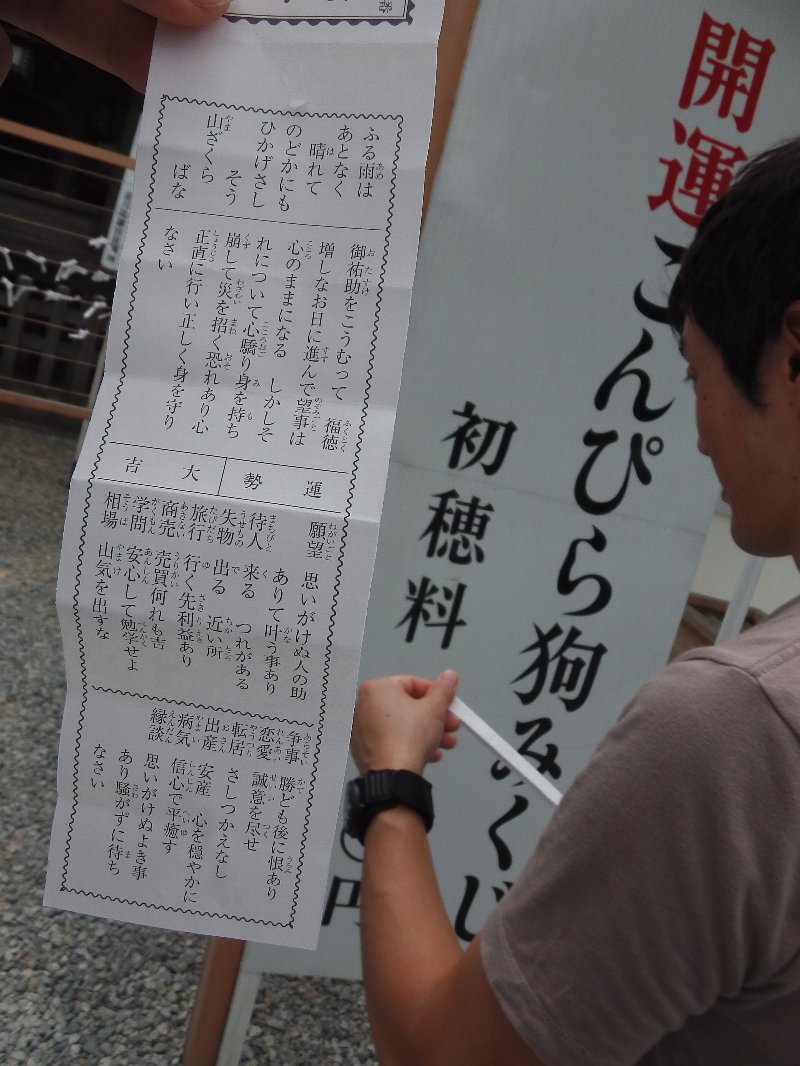 ふる雨は
あとなく
晴れて
のどかにも
ひかげさし
そう
山ざくら
ばな
御祐助をこうむって 福徳
増しなお日に進んで望事は
心のままになる しかしそ
れについて心驕り身を持ち
崩して災を招く恐れあり心
正直に行い正しく身を守り
なさい
運勢 大吉
願望 思いがけぬ人の助
ありて叶う事あり
待人 来る つれがある
失物 出る 近い所
旅行 行く先利益あり
商売 売買何れも吉
学問 安心して勉学せよ
相場 山気を出すな
争事 勝ども後に恨あり
恋愛 誠意を尽せ
転居 さしつかえなし
出産 安産 心を穏やかに
病気 信心で平癒す
縁談 思いがけぬよき事
あり騒がずに待ち
なさい
開運こんぴら狗みくじ
初穂料
円